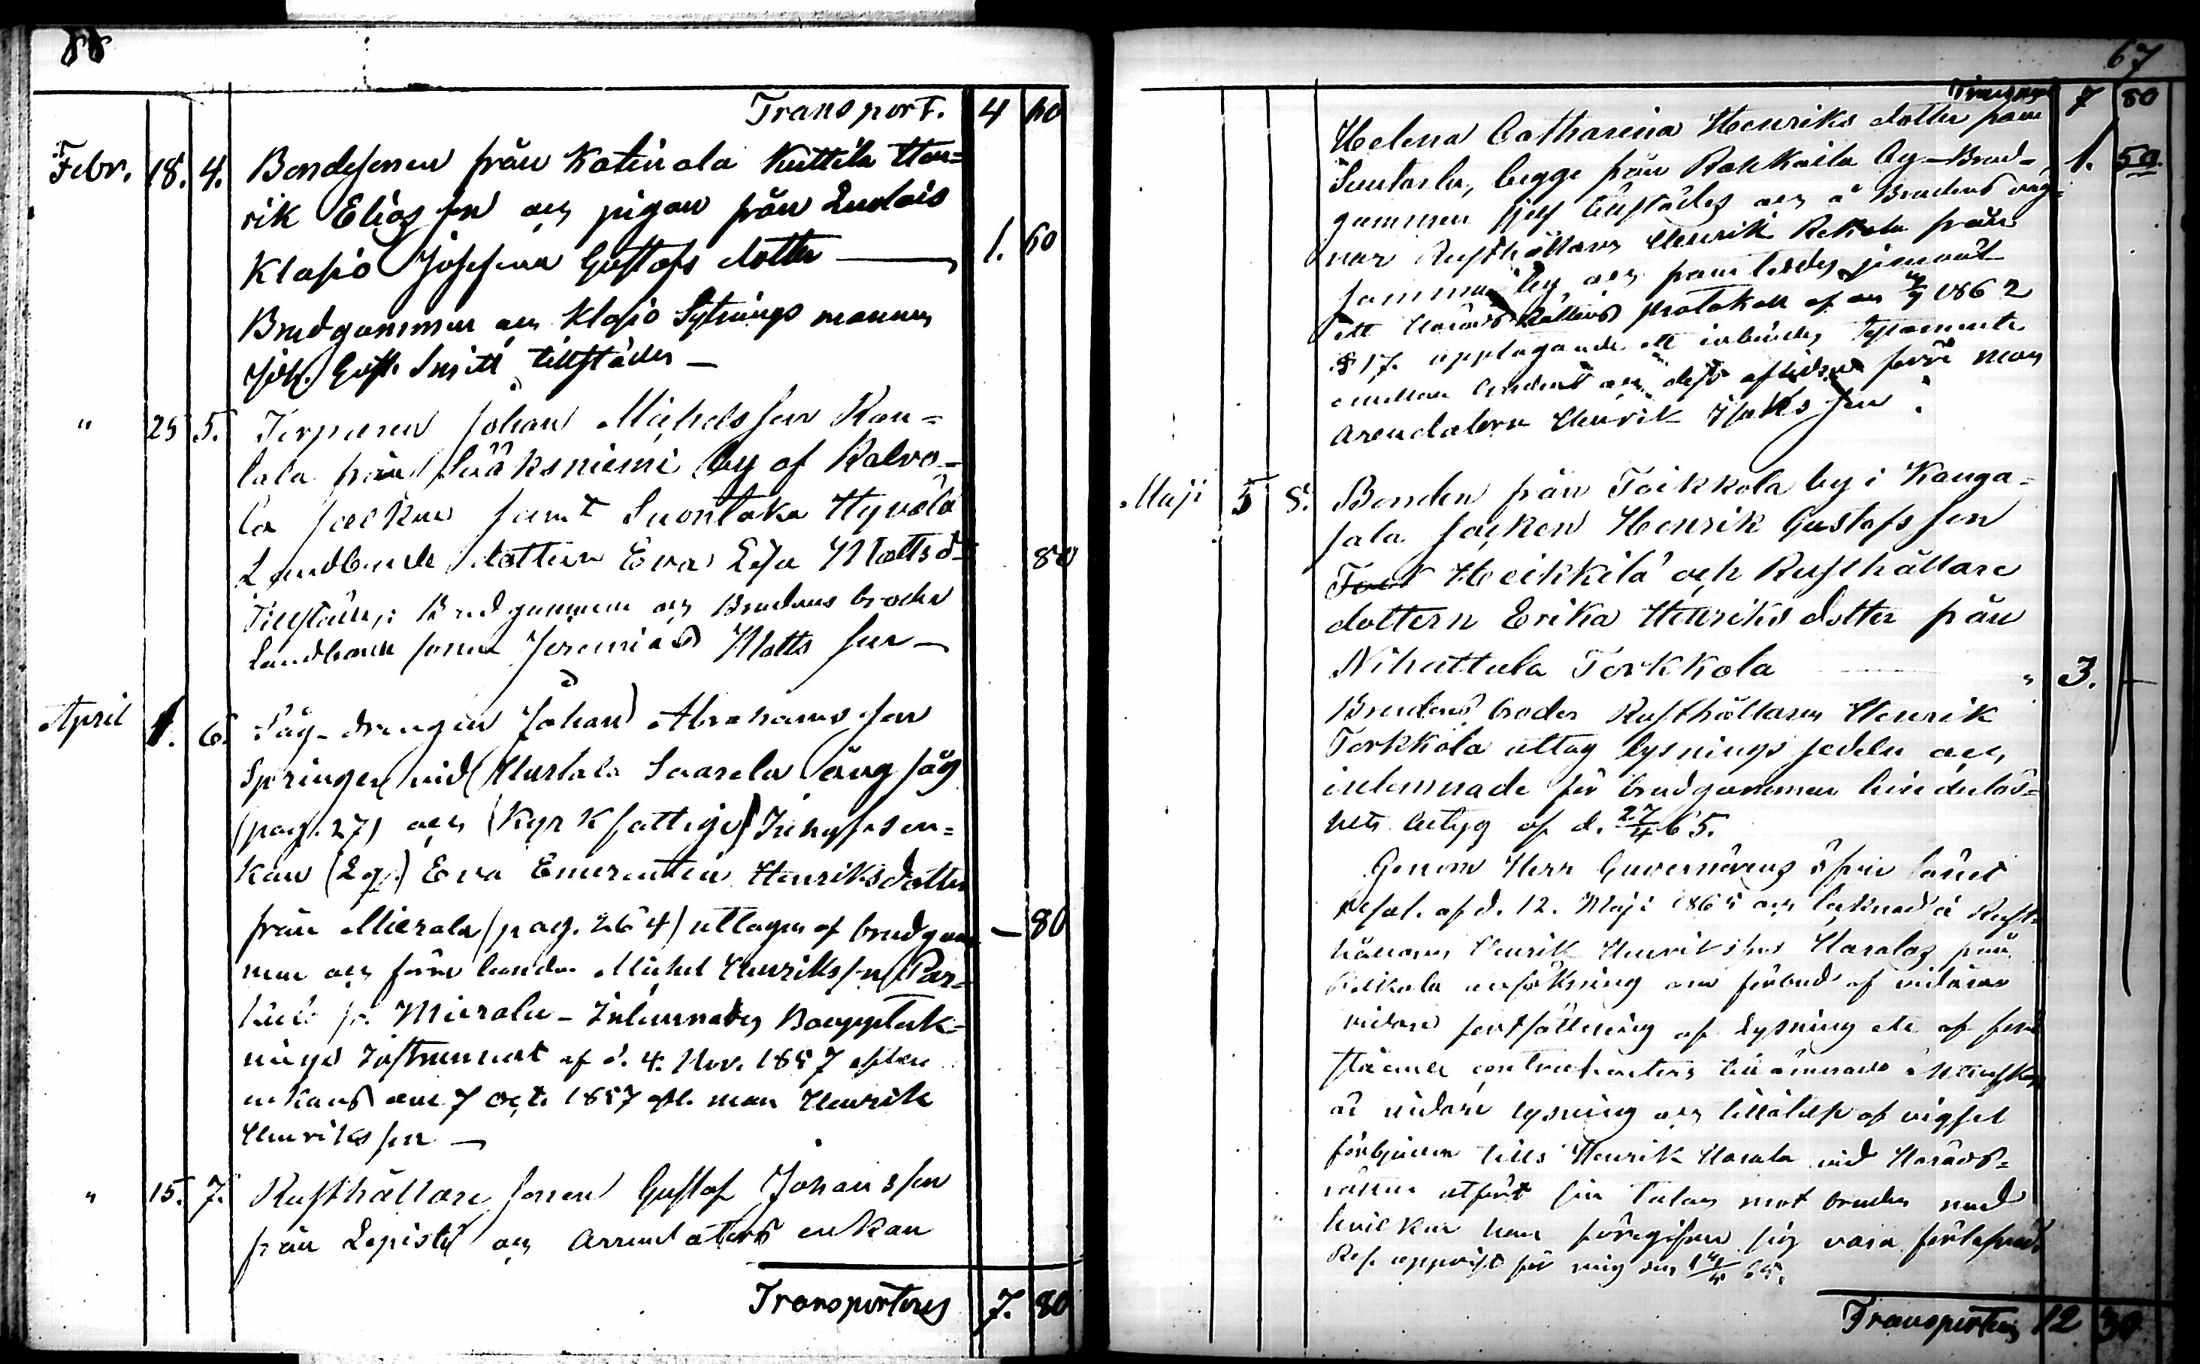 88
Transport. 4 60
Febr. 18. 4. Bondesonen från Katinala Kuttila Hen=
rik Eliasson och pigan från Lutois
Klasio Josefina Gustafs dotter — 1. 60
Brudgummen och Klasio Sytnings mannen
Joh. Gust. tillstädes —
" 25 5. Torparen Johan Michelsson Kan=
lala från Sääksniemi by af Kalvo=
la socken samt Suontaka Hyvälä
Landbonde dottern Eva Lisa Mattsd= 80
Tillstädes: Brudgummen och Brudens broder
Landbonde sonen Jeremias Mattsson —
April 1. 6. Såg-drengen Johan Abrahamsson
Springer vid Saarela ång såg
(pag. 27) och (Kyrkfattige) Inhyses en=
kan (Lg.) Eva Emerentia Henriksdotter
från Mierola (pag. 264) uttages af brudgum — 80
men och förre bonden Michel Henriksson
Mierola — Inlemnades Bouppteck=
nings Instrument af d. 4. Nov. 1857 efter
enkans den 7 Oct. 1857 afl. man Henrik
Henriksson —
" 15. 7. Rusthållare sonen Gustaf Johansson
från Lepistö och Arrendators enkan
Transporteres 7. 80
67
Transport 7 80
Helena Catharina Henriks dotter från
begge från Rekkoila by — Brud= 1. 50.
gummen sjelf tillstädes och å Brudens väg=
nar Rusthållaren Henrik Rekola från
samma by och framteddes jemväl
ett Härads Rättens Protokoll af den 1862
§ 17. upptagande ett inbördes Testamente
emellan Enkan och dess aflidne förre man
Arendatorn Henrik Isaksson.
Maji 5 8. Bonden från Toikkola by i Kanga=
sala socken Henrik Gustafsson
Heikkilä och Rusthållare
dottern Erika Henriks dotter från
Nihattula Torkkola " 3. —
Brudens broder Rusthållaren Henrik
Torkkola uttog lysnings sedeln och
inlemnade för brudgummen hinderlös=
hets betyg af d. 27/4 65.
Genom Herr Guvernörens öfver länet
resol. af d. 12. Maji 1865 och tecknad å Rust=
hållaren Henrik Henriksson Haralas från
ansökning om förbud af vidare
vidare fortsättning af Lysning etc. af
contrahenters tillämnade äktenskap
är vidare lysning och tillåtelse af vigsel
förbjuden tills Henrik Harala vid Härads=
rätten utfört sin talan mot bruden med
hvilken han föregifver sig vara förlofvad
Res. uppvist för mig den 65.
Transporteres 12 30